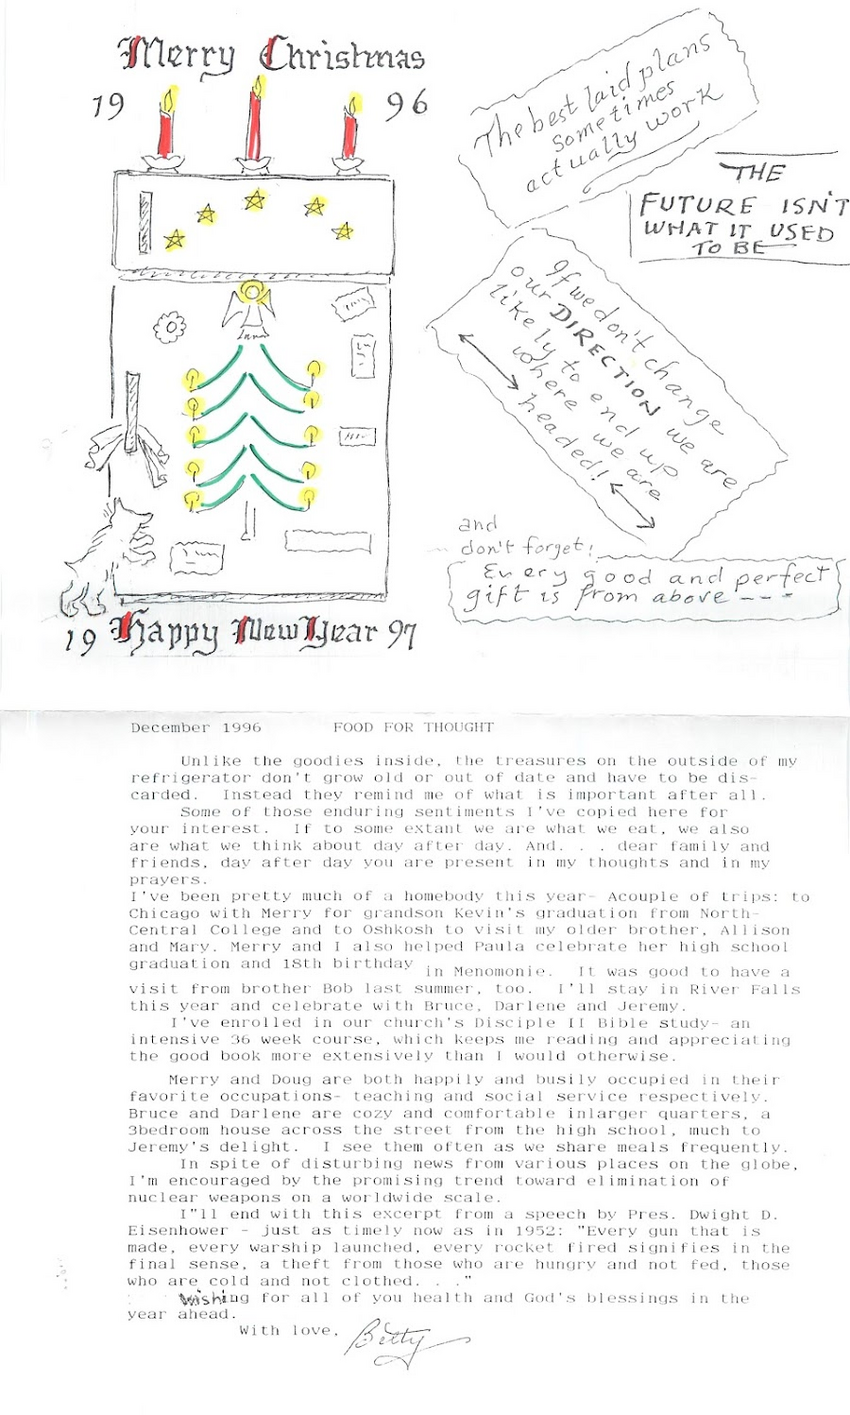 Merry Christmas
19 96
Happy New Year
19 97
The best laid plans
sometimes
actually work
THE
FUTURE ISN'T
WHAT IT USED
TO BE
If we don't change
our DIRECTION we are
likely to end up
where we are
headed!
and
don't forget!
Every good and perfect
gift is from above ---
December 1996 FOOD FOR THOUGHT
Unlike the goodies inside, the treasures on the outside of my
refrigerator don't grow old or out of date and have to be dis-
carded. Instead they remind me of what is important after all.
Some of those enduring sentiments I've copied here for
your interest. If to some extant we are what we eat, we also
are what we think about day after day. And. . . dear family and
friends, day after day you are present in my thoughts and in my
prayers.
I've been pretty much of a homebody this year- Acouple of trips: to
Chicago with Merry for grandson Kevin's graduation from North-
Central College and to Oshkosh to visit my older brother, Allison
and Mary. Merry and I also helped Paula celebrate her high school
graduation and 18th birthday in Menomonie. It was good to have a
visit from brother Bob last summer, too. I'll stay in River Falls
this year and celebrate with Bruce, Darlene and Jeremy.
I've enrolled in our church's Disciple II Bible study- an
intensive 36 week course, which keeps me reading and appreciating
the good book more extensively than I would otherwise.
Merry and Doug are both happily and busily occupied in their
favorite occupations- teaching and social service respectively.
Bruce and Darlene are cozy and comfortable inlarger quarters, a
3bedroom house across the street from the high school, much to
Jeremy's delight. I see them often as we share meals frequently.
In spite of disturbing news from various places on the globe,
I'm encouraged by the promising trend toward elimination of
nuclear weapons on a worldwide scale.
I"ll end with this excerpt from a speech by Pres. Dwight D.
Eisenhower - just as timely now as in 1952: "Every gun that is
made, every warship launched, every rocket fired signifies in the
final sense, a theft from those who are hungry and not fed, those
who are cold and not clothed. . ."
Wishing for all of you health and God's blessings in the
year ahead.
With love, Betty